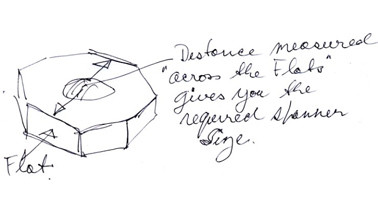 Distance measured
"across the Flats"
gives you the
required spanner
size.
Flat.